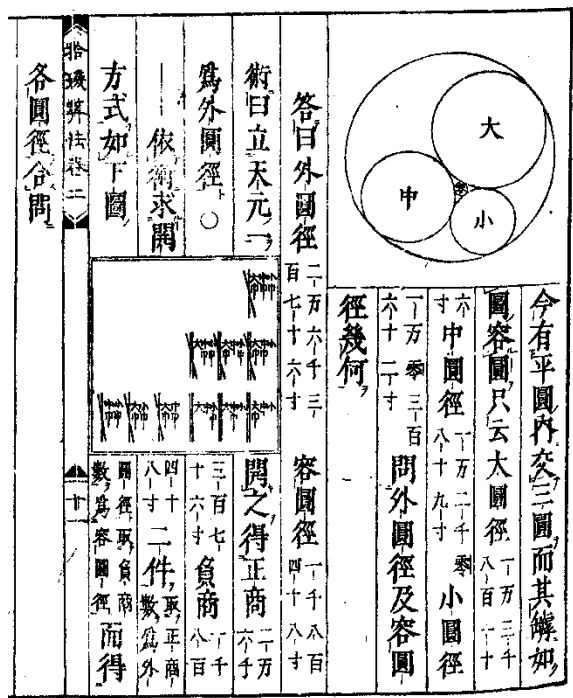 大
中
小
今有平圓內交三圓而其罅如
圖容圓只云大圓徑一万三千八百一十
六寸中圓徑一万二千零八十九寸小圓徑
一万零三百六十二寸問外圓徑及容圓
徑幾何
答曰外圓徑二万六千三百七十六寸容圓徑一千八百四十八寸
術曰立天元一
爲外圓徑〇
｜依術求開
方式如下圖
開之得正商二万六千
三百七十六寸負商一千八百
四十八寸二件取正商數爲外
圓徑取負商數爲容圓徑而得
各圓徑合問
拾璣算法卷二